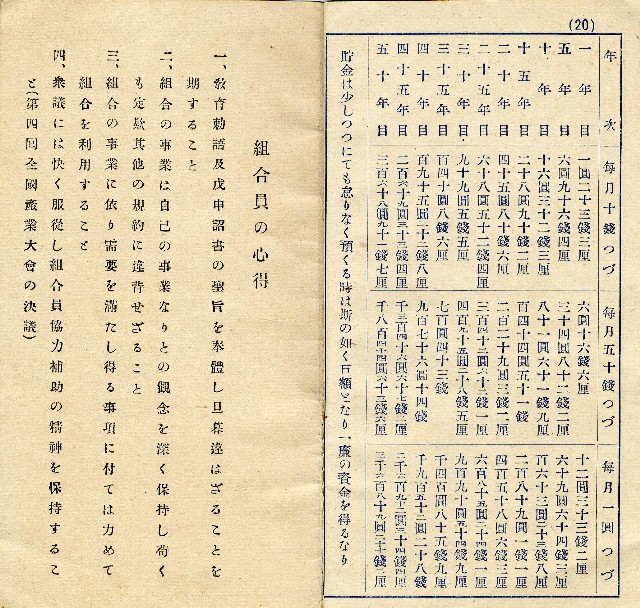 (20)
年次 毎月十錢つづ 毎月五十錢つづ 毎月一圓つづ
一年目 一圓二十三錢三厘 六圓十六錢六厘 十二圓三十三錢二厘
五年目 六圓九十六錢四厘 三十四圓八十二錢二厘 六十九圓六十四錢三厘
十年目 十六圓三十二錢三厘 八十一圓六十一錢九厘 百六十三圓二十三錢八厘
十五年目 二十八圓九十錢二厘 百四十四圓五十一錢 二百八十九圓一錢一厘
二十年目 四十五圓八十錢六厘 二百二十九圓三錢二厘 四百五十八圓六錢三厘
二十五年目 六十八圓五十二錢四厘
三十年目 九十九圓五錢五厘 四百九十五圓二十八錢五厘
三十五年目 百四十圓八錢六厘 七百圓四十三錢 千四百圓八十五錢九厘
四十年目 百九十五圓二十二錢八厘 九百七十六圓十四錢 千九百五十二圓二十八錢
四十五年目 二百六十九圓三十三錢四厘
五十年目 三百六十八圓九十二錢七厘
貯金は少しつつにても怠りなく預くる時は斯の如く巨額となり一廉の資金を得るなり
組合員の心得
一、敎育勅語及戊申詔書の趣旨を奉體し旦暮違はざることを
期すること
二、組合の事業は自己の事業なりとの觀念を深く保持し苟く
も定欵其他の規約に違背せざること
三、組合の事業に依り需要を滿たし得る事項に付ては力めて
組合を利用すること
四、衆議には快く服從し組合員協力補助の精神を保持するこ
と(第四回全國產業大會の決議)